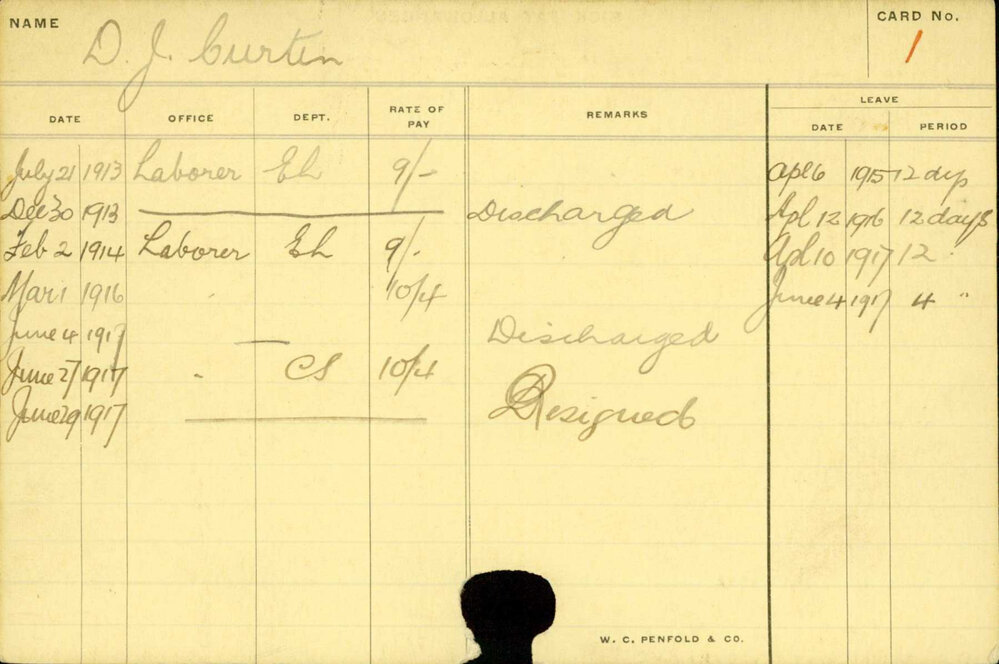 NAME D. J. Curten CARD No. 1
LEAVE
DATE OFFICE DEPT. RATE OF PAY REMARKS DATE PERIOD
July 21 1913 Laborer Eh 9/- Apl 6 1915 12 dys
Dec 30 1913 Discharged Apl 12 1916 12 days
Feb 2 1914 Laborer Eh 9/- Apl 10 1917 12 "
Mar 1 1916 " 10/4 June 4 1917 4 "
June 4 1917 Discharged
June 27 1917 " CS 10/4
June 29 1917 Resigned
W. C. PENFOLD & CO.